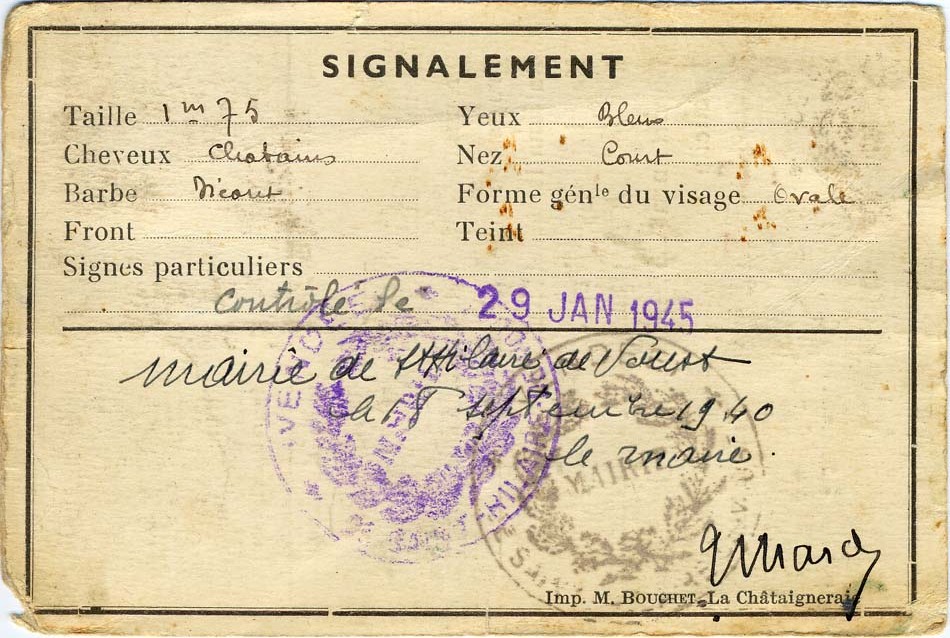 SIGNALEMENT
Taille 1m 75 Yeux Bleus
Cheveux Chatains Nez Court
Barbe Forme génle du visage Ovale
Front Teint
Signes particuliers
Contrôlé le 29 JAN 1945
mairie de St Hilaire de Voust
septembre 1940
le maire.
VENDÉE
MAIRIE
Imp. M. BOUCHET, La Châtaigneraie